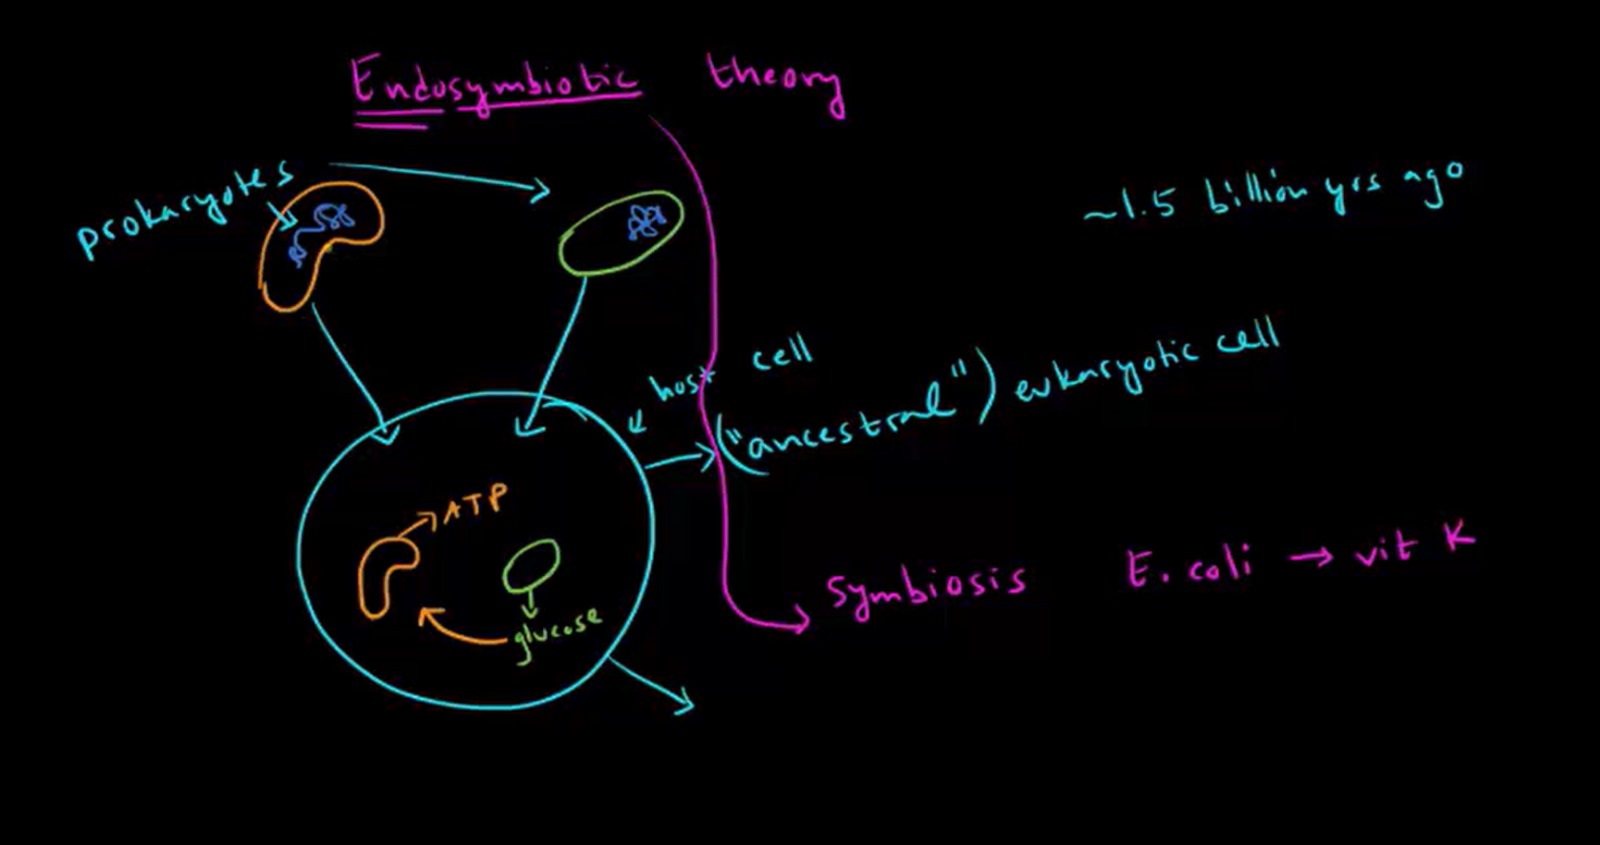 Endosymbiotic theory
prokaryotes
~1.5 billion yrs ago
host cell
("ancestral") eukaryotic cell
ATP
glucose
Symbiosis E. coli → vit K